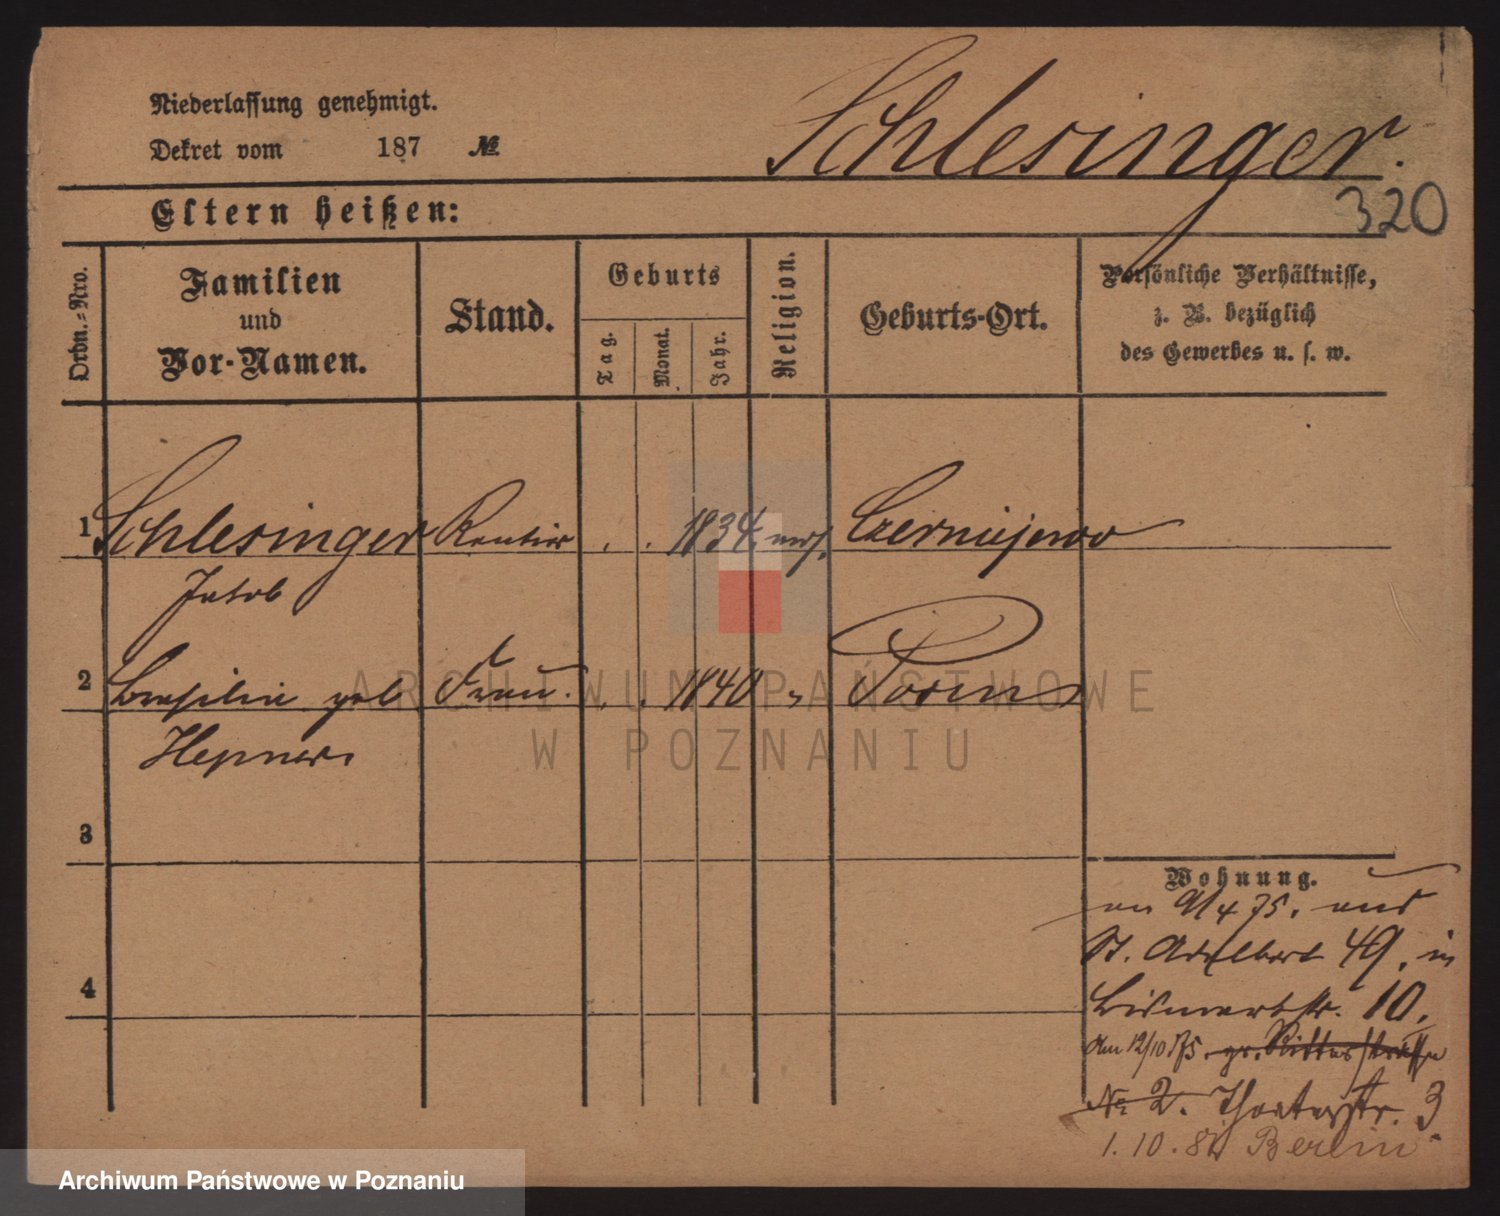 Niederlassung genehmigt.
Dekret vom 187 №
Schlesinger.
320
Eltern heißen:
Ordn.=Nro.
Familien
und
Vor-Namen.
Stand.
Geburts
Tag.
Monat.
Jahr.
Religion.
Geburts-Ort.
Persönliche Verhältnisse,
z. B. bezüglich
des Gewerbes u. s. w.
1 Schlesinger Rentier . . 1834. mos. Czerniejewo
Jakob
2 geb. Frau. . . 1840 " Posen
Hepner
3
4
Wohnung.
am 9/4 75. aus
St. Adalbert 49. in
Bismarckstr. 10.
Am 12/10 75. gr. Ritterstraße
No 2. Theaterstr. 3
1. 10. Berlin
ARCHIWUM PAŃSTWOWE
W POZNANIU
Archiwum Państwowe w Poznaniu